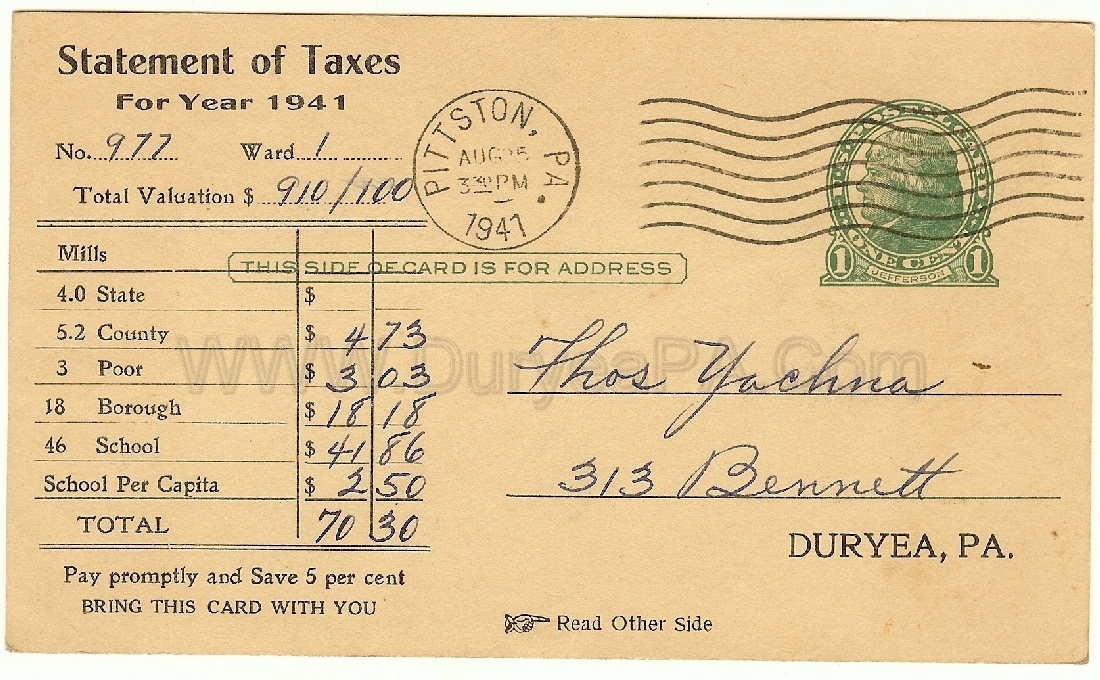 Statement of Taxes
For Year 1941
No. 977 Ward 1
Total Valuation $ 910/100
Mills
4.0 State $
5.2 County $ 4 73
3 Poor $ 3 03
18 Borough $ 18 18
46 School $ 41 86
School Per Capita $ 2 50
TOTAL 70 30
Pay promptly and Save 5 per cent
BRING THIS CARD WITH YOU
PITTSTON, PA.
AUG 25
3 30 PM
1941
THIS SIDE OF CARD IS FOR ADDRESS
U.S. POSTAL CARD
ONE CENT
1 JEFFERSON 1
www.DuryeaPA.Com
Thos Yachna
313 Bennett
DURYEA, PA.
Read Other Side